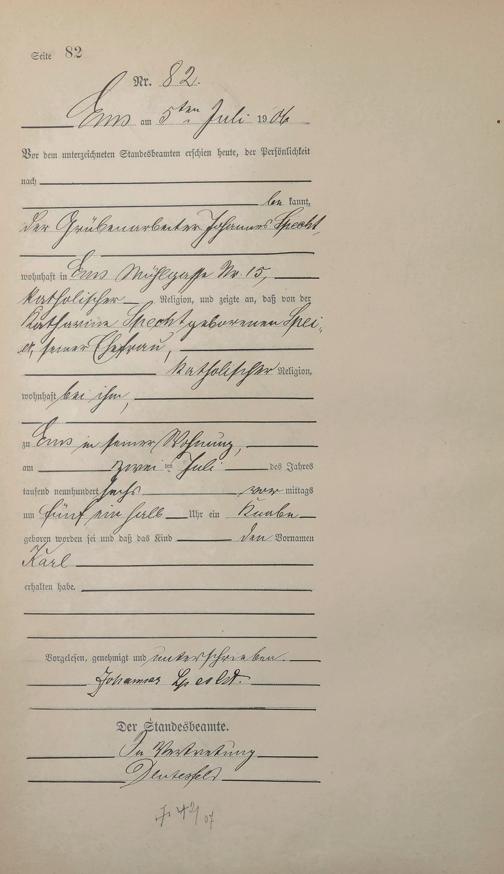 Seite 82
Nr. 82.
Ems am 5ten Juli 1906
Vor dem unterzeichneten Standesbeamten erschien heute, der Persönlichkeit
nach
be kannt,
der Grubenarbeiter Johannes Specht,
wohnhaft in Ems Mühlgasse Nr. 15,
katholischer Religion, und zeigte an, daß von der
Katharina Specht geborenen
seiner Ehefrau,
katholischer Religion,
wohnhaft bei ihm,
zu Ems in seiner Wohnung,
am zwei ten Juli des Jahres
tausend neunhundert sechs vor mittags
um fünf ein halb Uhr ein Knabe
geboren worden sei und daß das Kind den Vornamen
Karl
erhalten habe.
Vorgelesen, genehmigt und unterschrieben.
Johannes Specht.
Der Standesbeamte.
In Vertretung